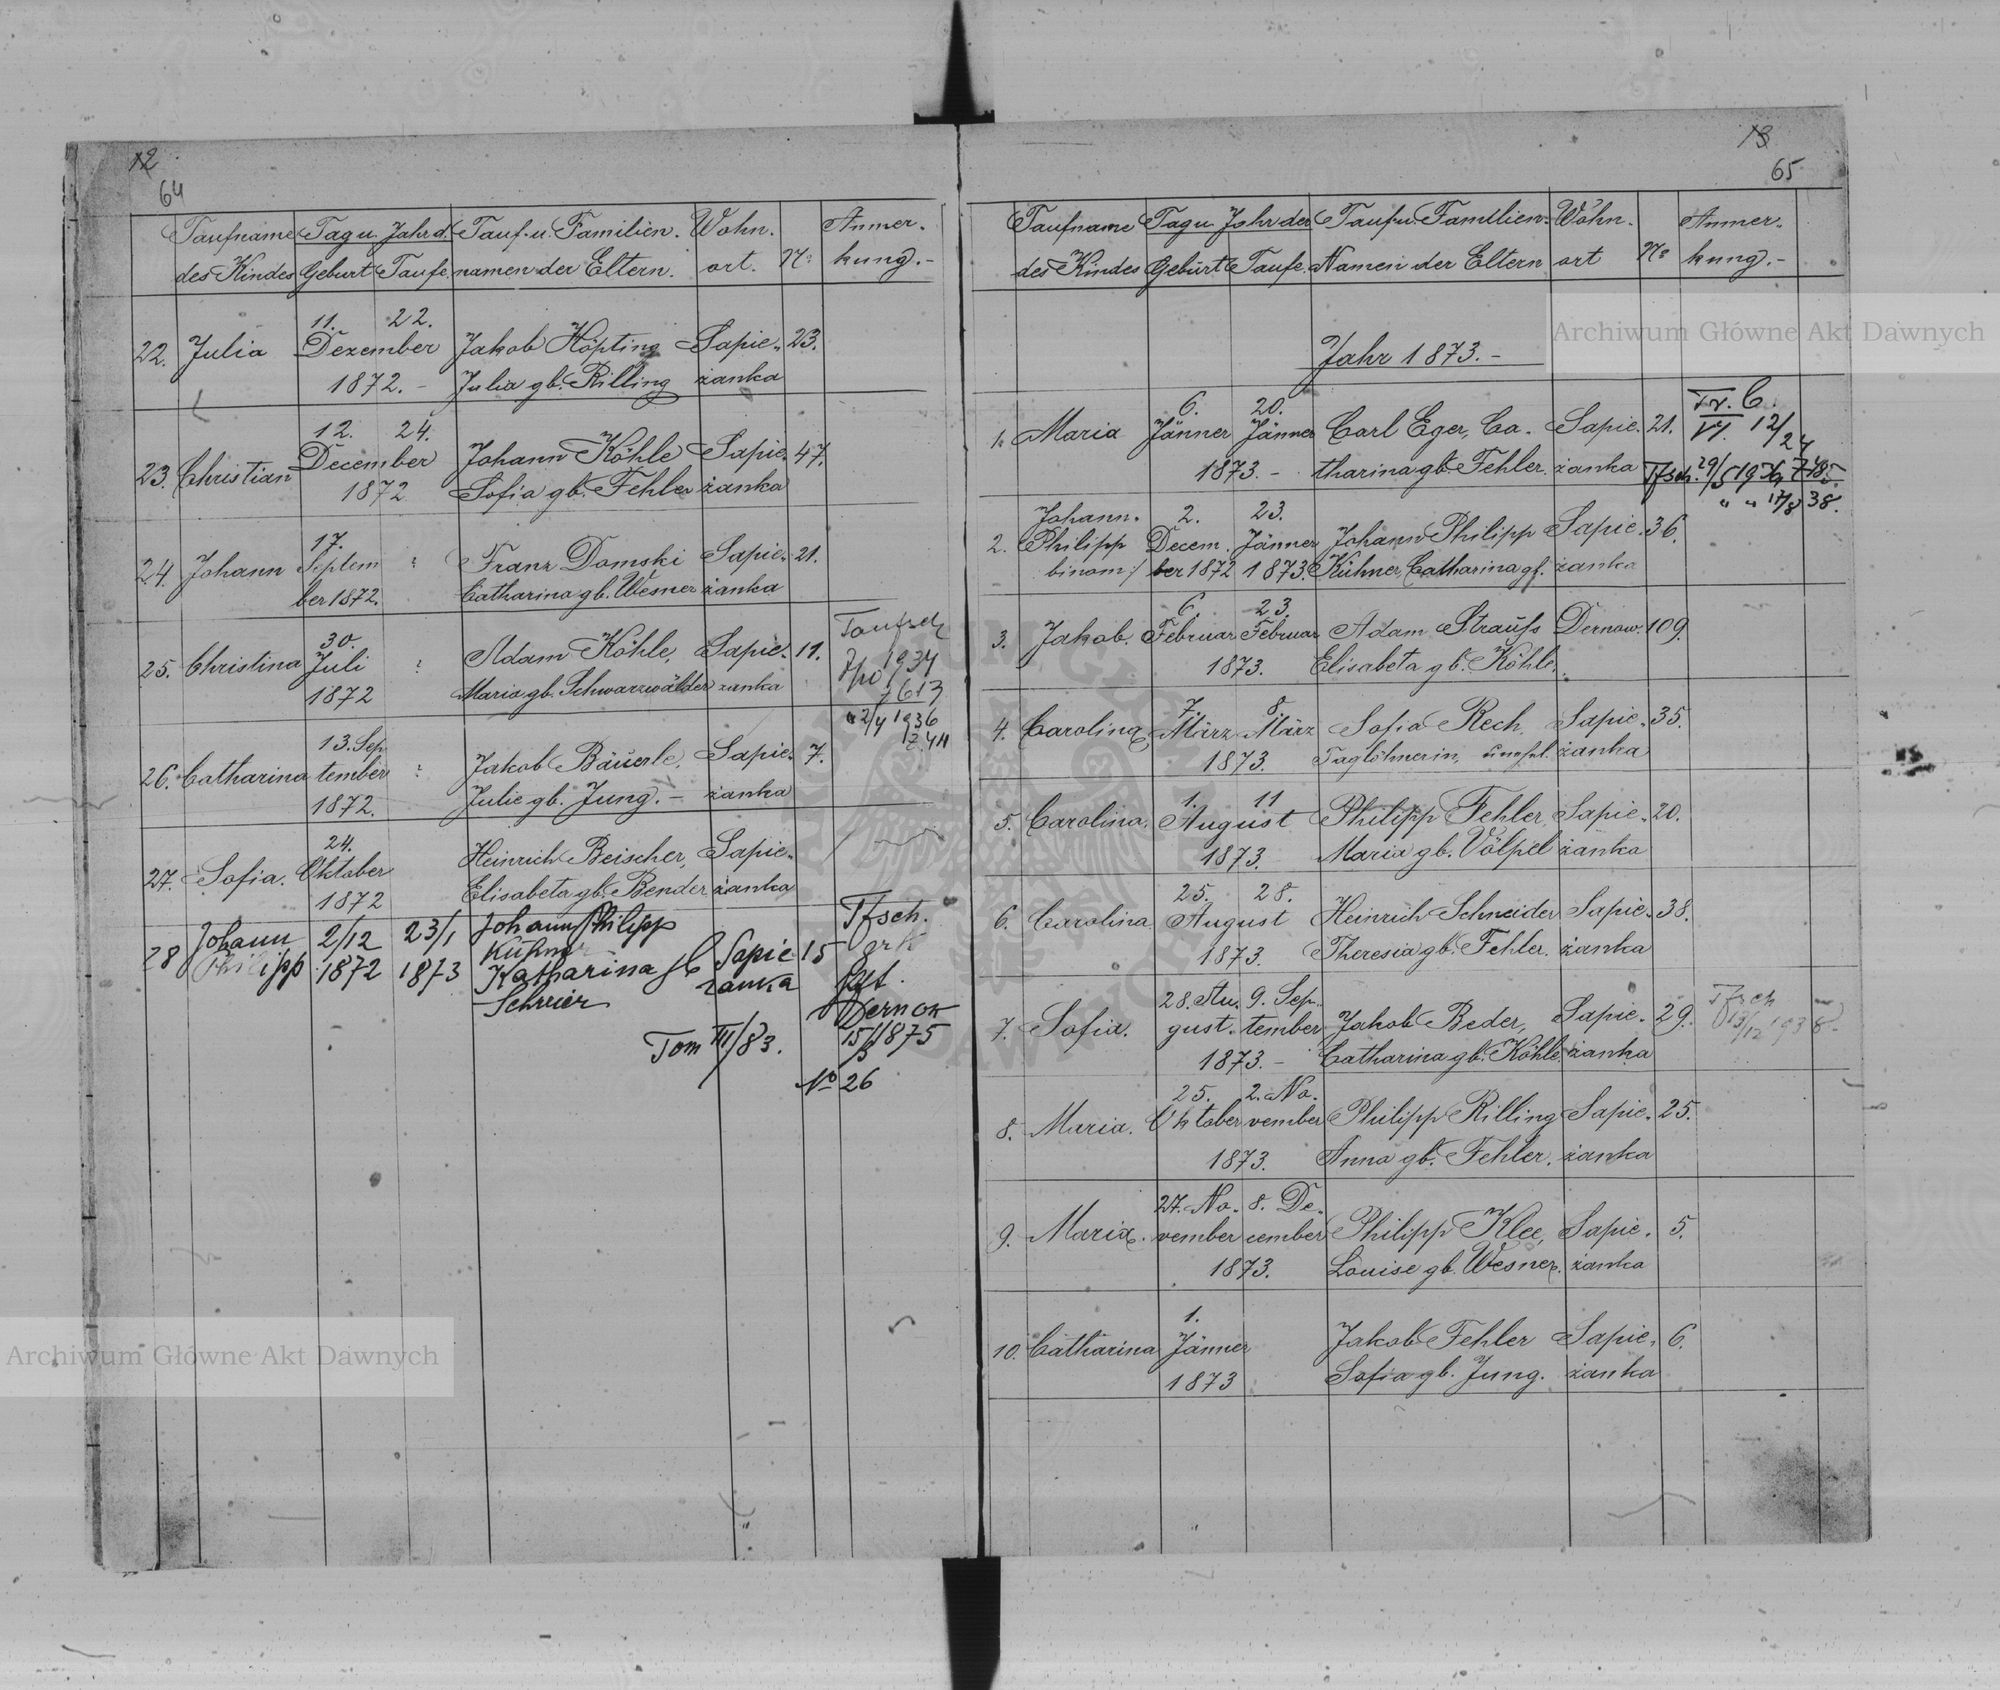 12
64
Taufname Tag u. Jahr d. Tauf- u. Familien- Wohn- Anmer-
des Kindes Geburt Taufe namen der Eltern. ort. No kung.-
11. 22.
22. Julia Dezember Jakob Höpting Sapie- 23.
1872.- Julia gb. Rilling żanka
12. 24.
23. Christian December Johann Köhle Sapie- 47.
1872 Sofia gb. Fehler żanka
17.
24. Johann Septem ? Franz Domski Sapie- 21.
ber 1872. Catharina gb. Wesner żanka
30.
25. Christina Juli ? Adam Köhle, Sapie- 11.
1872 Maria gb. Schwarzwälder żanka
Taufsch
7/10 1934
613
" 2/4 1936
Z. 411
13. Sep
26. Catharina tember ? Jakob Bäuerle, Sapie- 7.
1872. Julie gb. Jung.- żanka
24.
27. Sofia. Oktober Heinrich Beischer, Sapie-
1872 Elisabeta gb. Bender żanka
28 Johann 2/12 23/1 Johann Philipp Tfsch.
Philipp 1872 1873 Kühner Sapie 15
Katharina gb żanka
Schreier Dernow
Tom III/83. 15/1875
No 26
13
65
Taufname Tag u. Jahr der Tauf u. Familien- Wohn- Anmer-
des Kindes Geburt Taufe. Namen der Eltern ort No kung.-
Jahr 1873.-
6. 20.
1. Maria Jänner Jänner Carl Eger, Ca- Sapie- 21.
1873.- tharina gb. Fehler. żanka
12/24
Tfsch. 29/5
" " 17/8 38.
Johann- 2. 23.
2. Philipp Decem- Jänner Johann Philipp Sapie- 36.
binom:/ ber 1872 1873. Kühner, Catharina gb. żanka
6. 23.
3. Jakob. Februar Februar Adam Strauß Dernow 109.
1873. Elisabeta gb. Köhle.
7. 8.
4. Carolina März März Sofia Rech, Sapie- 35.
1873. Taglöhnerin, żanka
1. 11
5. Carolina. August Philipp Fehler, Sapie- 20.
1873. Maria gb. Völpel żanka
25. 28.
6. Carolina August Heinrich Schneider Sapie- 38.
1873. Theresia gb. Fehler. żanka
28. Au- 9. Sep-
7. Sofia. gust. tember Jakob Beder, Sapie- 29.
1873.- Catharina gb. Köhle żanka
Tfsch
13/12 1938.
25. 2. No-
8. Maria. Oktober vember Philipp Rilling Sapie- 25.
1873. Anna gb. Fehler. żanka
27. No- 8. De-
9. Maria. vember cember Philipp Klee, Sapie- 5.
1873. Louise gb. Wesner. żanka
1.
10. Catharina Jänner Jakob Fehler Sapie- 6.
1873 Sofia gb. Jung. żanka
Archiwum Główne Akt Dawnych
Archiwum Główne Akt Dawnych